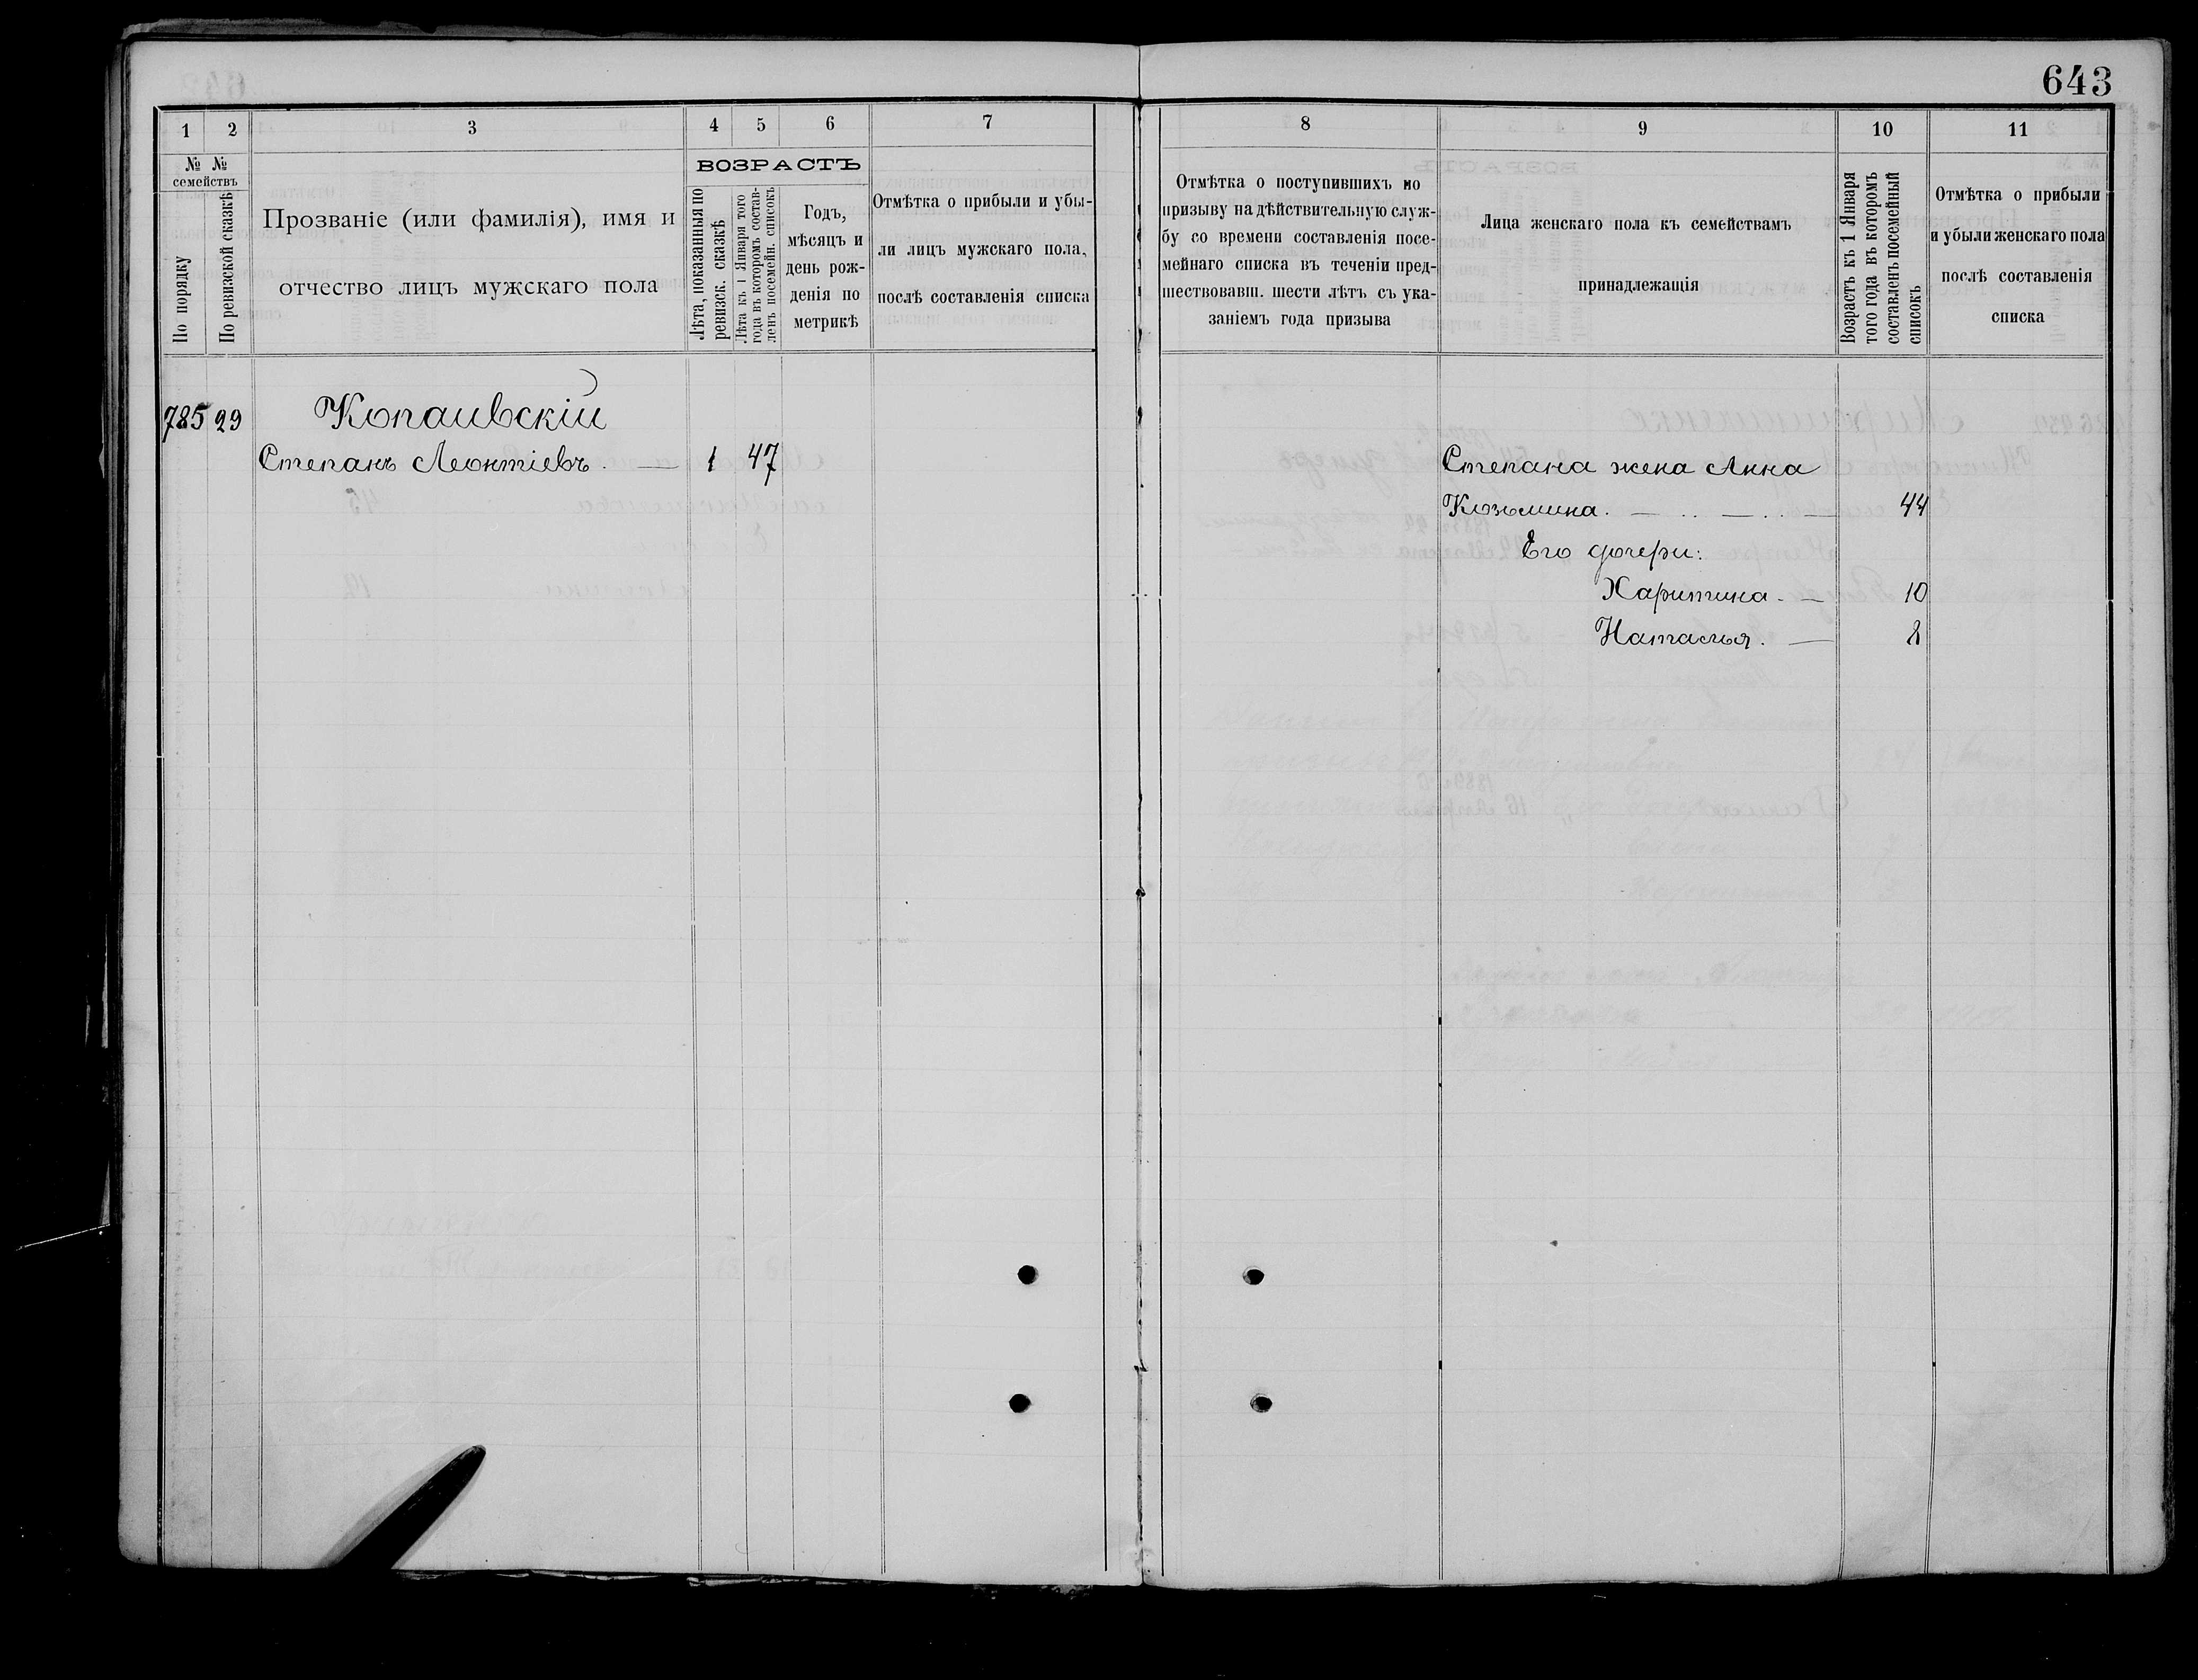 643
1 2 3 4 5 6 7
№ № семействъ
По порядку
По ревизской сказкѣ
Прозваніе (или фамилія), имя и
отчество лицъ мужскаго пола
ВОЗРАСТЪ
Лѣта, показанныя по
ревизск. сказкѣ
Лѣта къ 1 Января того
года въ которомъ состав-
ленъ посемейн. списокъ
Годъ,
мѣсяцъ и
день рож-
денія по
метрикѣ
Отмѣтка о прибыли и убы-
ли лицъ мужскаго пола,
послѣ составленія списка
785 29 Копаивскій
Степанъ Леонтіевъ. — 1 47
8 9 10 11
Отмѣтка о поступившихъ по
призыву на дѣйствительную служ-
бу со времени составленія посе-
мейнаго списка въ теченіи пред-
шествовавш. шести лѣтъ съ ука-
заніемъ года призыва
Лица женскаго пола къ семействамъ
принадлежащія
Возрастъ къ 1 Января
того года въ которомъ
составленъ посемейный
списокъ
Отмѣтка о прибыли
и убыли женскаго пола
послѣ составленія
списка
Степана жена Анна
Козьмина. — .. — .. — 44
Его дочери:
Харитина. — 10
Наталья. — 8